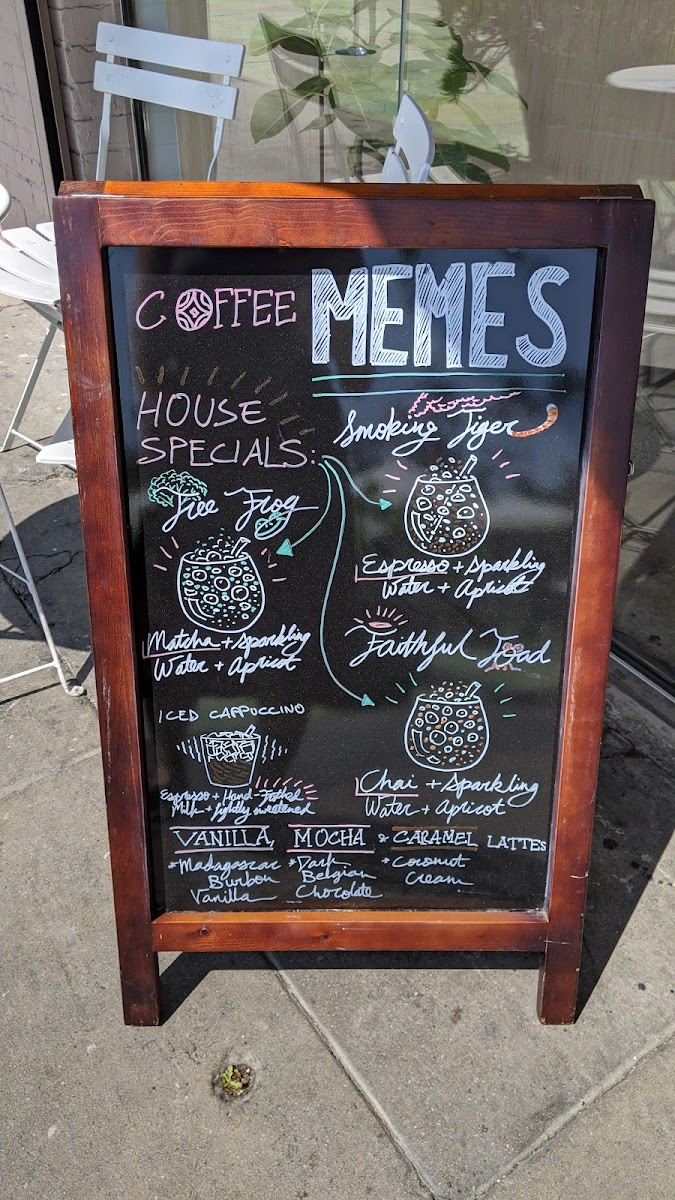 COFFEE MEMES
HOUSE
SPECIALS:
Tree Frog
Matcha + Sparkling
Water + Apricot
Smoking Tiger
Espresso + Sparkling
Water + Apricot
Faithful Toad
Chai + Sparkling
Water + Apricot
ICED CAPPUCCINO
Espresso + Hand-Frothed
Milk + lightly sweetened
VANILLA, MOCHA & CARAMEL LATTEs
*Madagascar
Burbon
Vanilla
*Dark
Belgian
Chocolate
*Coconut
Cream